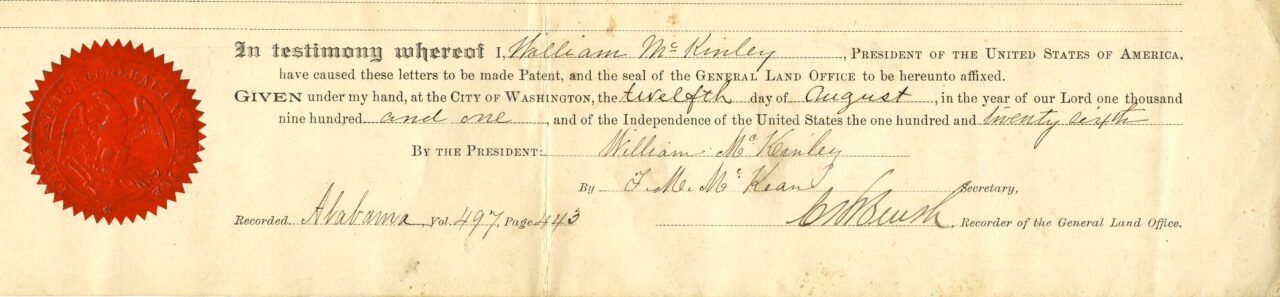 In testimony whereof I, William McKinley, PRESIDENT OF THE UNITED STATES OF AMERICA,
have caused these letters to be made Patent, and the seal of the GENERAL LAND OFFICE to be hereunto affixed.
GIVEN under my hand, at the CITY OF WASHINGTON, the twelfth day of August, in the year of our Lord one thousand
nine hundred and one, and of the Independence of the United States the one hundred and twenty sixth
BY THE PRESIDENT: William McKinley
By F. M. McKean Secretary,
Recorded Alabama, Vol. 497, Page 443
Recorder of the General Land Office.